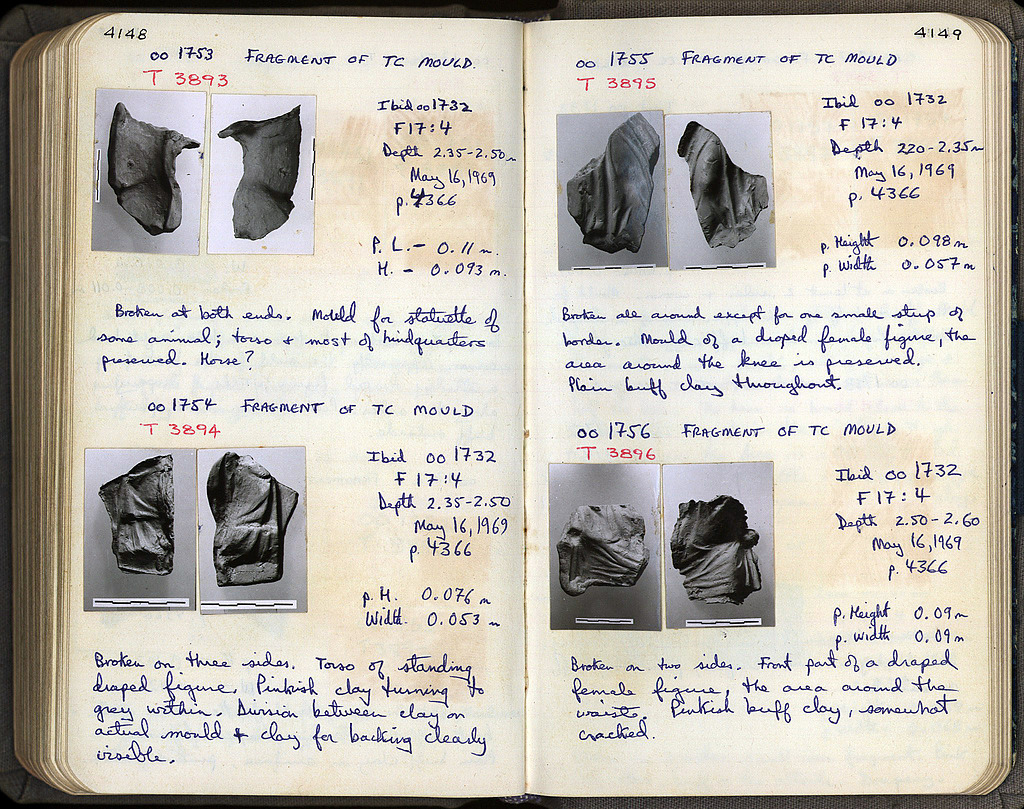 4148
oo 1753 FRAGMENT OF TC MOULD.
T 3893
Ibid oo 1732
F 17:4
Depth 2.35-2.50 m
May 16, 1969
p. 4366
P. L. - 0.11 m.
H. - 0.093 m.
Broken at both ends. Mould for statuette of
some animal; torso & most of hindquarters
preserved. Horse?
oo 1754 FRAGMENT OF TC MOULD
T 3894
Ibid oo 1732
F 17:4
Depth 2.35-2.50
May 16, 1969
p. 4366
p. H. 0.076 m
Width. 0.053 m
Broken on three sides. Torso of standing
draped figure. Pinkish clay turning to
grey within. Division between clay on
actual mould & clay for backing clearly
visible.
4149
oo 1755 FRAGMENT OF TC MOULD
T 3895
Ibid oo 1732
F 17:4
Depth 220-2.35m
May 16, 1969
p. 4366
p. Height 0.098 m
p. Width 0.057 m
Broken all around except for one small strip of
border. Mould of a draped female figure, the
area around the knee is preserved.
Plain buff clay throughout.
oo 1756 FRAGMENT OF TC MOULD
T 3896
Ibid oo 1732
F 17:4
Depth 2.50-2.60
May 16, 1969
p. 4366
p. Height 0.09 m
p. Width 0.09 m
Broken on two sides. Front part of a draped
female figure, the area around the
waist. Pinkish buff clay, somewhat
cracked.